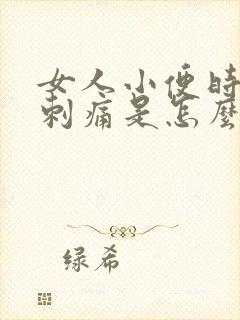 女人小便时
刺痛是怎麽
绿希